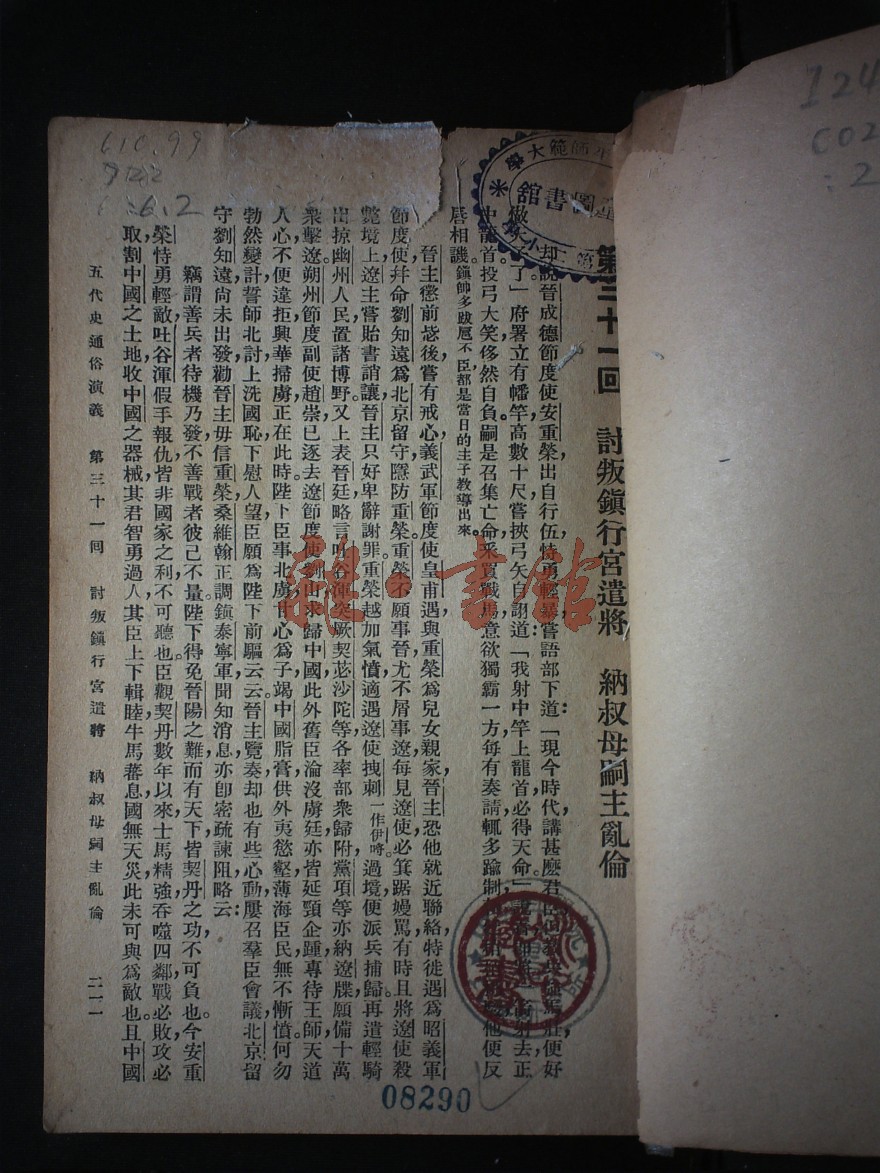 第三十一回　討叛鎮行宮遣將　納叔母嗣主亂倫
却說晉成德節度使安重榮，出自行伍，恃勇輕暴，嘗語部下道：「現今時代，講甚麼君臣，但教兵強馬壯，便好
做天子了。」府署立有幡竿，高數十尺，嘗挾弓矢自詡道：「我射中竿上龍首，必得天命。」說着，卽將一箭射去，正
中龍首，投弓大笑，侈然自負。嗣是召集亡命，采買戰馬，意欲獨霸一方，每有奏請，輒多踰制，他便反
唇相譏。鎮帥多跋扈不臣，都是當日的主子教導出來。
晉主懲前毖後，嘗有戒心，義武軍節度使皇甫遇，與重榮爲兒女親家，晉主恐他就近聯絡，特徙遇爲昭義軍
節度使，幷命劉知遠爲北京留守，隱防重榮。重榮不願事晉，尤不屑事遼，每見遼使，必箕踞嫚罵，有時且將遼使殺
斃境上，遼主嘗貽書誚讓，晉主只好卑辭謝罪，重榮越加氣憤，適遇遼使拽剌，一作伊喇。過境，便派兵捕歸，再遣輕騎
出掠幽州人民，置諸博野，又上表晉廷，略言吐谷渾、突厥、契苾、沙陀等，各率部衆歸附，黨項等亦納遼牒，願備十萬
衆擊遼，朔州節度副使趙崇，已逐去遼節度使劉山，求歸中國，此外舊臣淪沒虜廷，亦皆延頸企踵，專待王師，天道
人心，不便違拒，興華掃虜，正在此時，陛下臣事北虜，甘心爲子，竭中國脂膏，供外夷慾壑，薄海臣民，無不慚憤，何勿
勃然變計，誓師北討，上洗國恥，下慰人望，臣願爲陛下前驅云云。晉主覽奏，却也有些心動，屢召羣臣會議，北京留
守劉知遠尚未出發，勸晉主毋信重榮，桑維翰正調鎮泰寧軍，聞知消息，亦卽密疏諫阻，略云：
竊謂善兵者待機乃發，不善戰者彼己不量，陛下得免晉陽之難，而有天下，皆契丹之功，不可負也。今安重
榮恃勇輕敵，吐谷渾假手報仇，皆非國家之利，不可聽也。臣觀契丹數年以來，士馬精強，吞噬四鄰，戰必敗，攻必
取，割中國之土地，收中國之器械，其君智勇過人，其臣上下輯睦，牛馬蕃息，國無天災，此未可與爲敵也。且中國
五代史通俗演義　第三十一回　討叛鎮行宮遣將　納叔母嗣主亂倫　二一一
08290
610.99
722
:6.2
I24
C02
:2
師範大學
圖書館
雒·書館